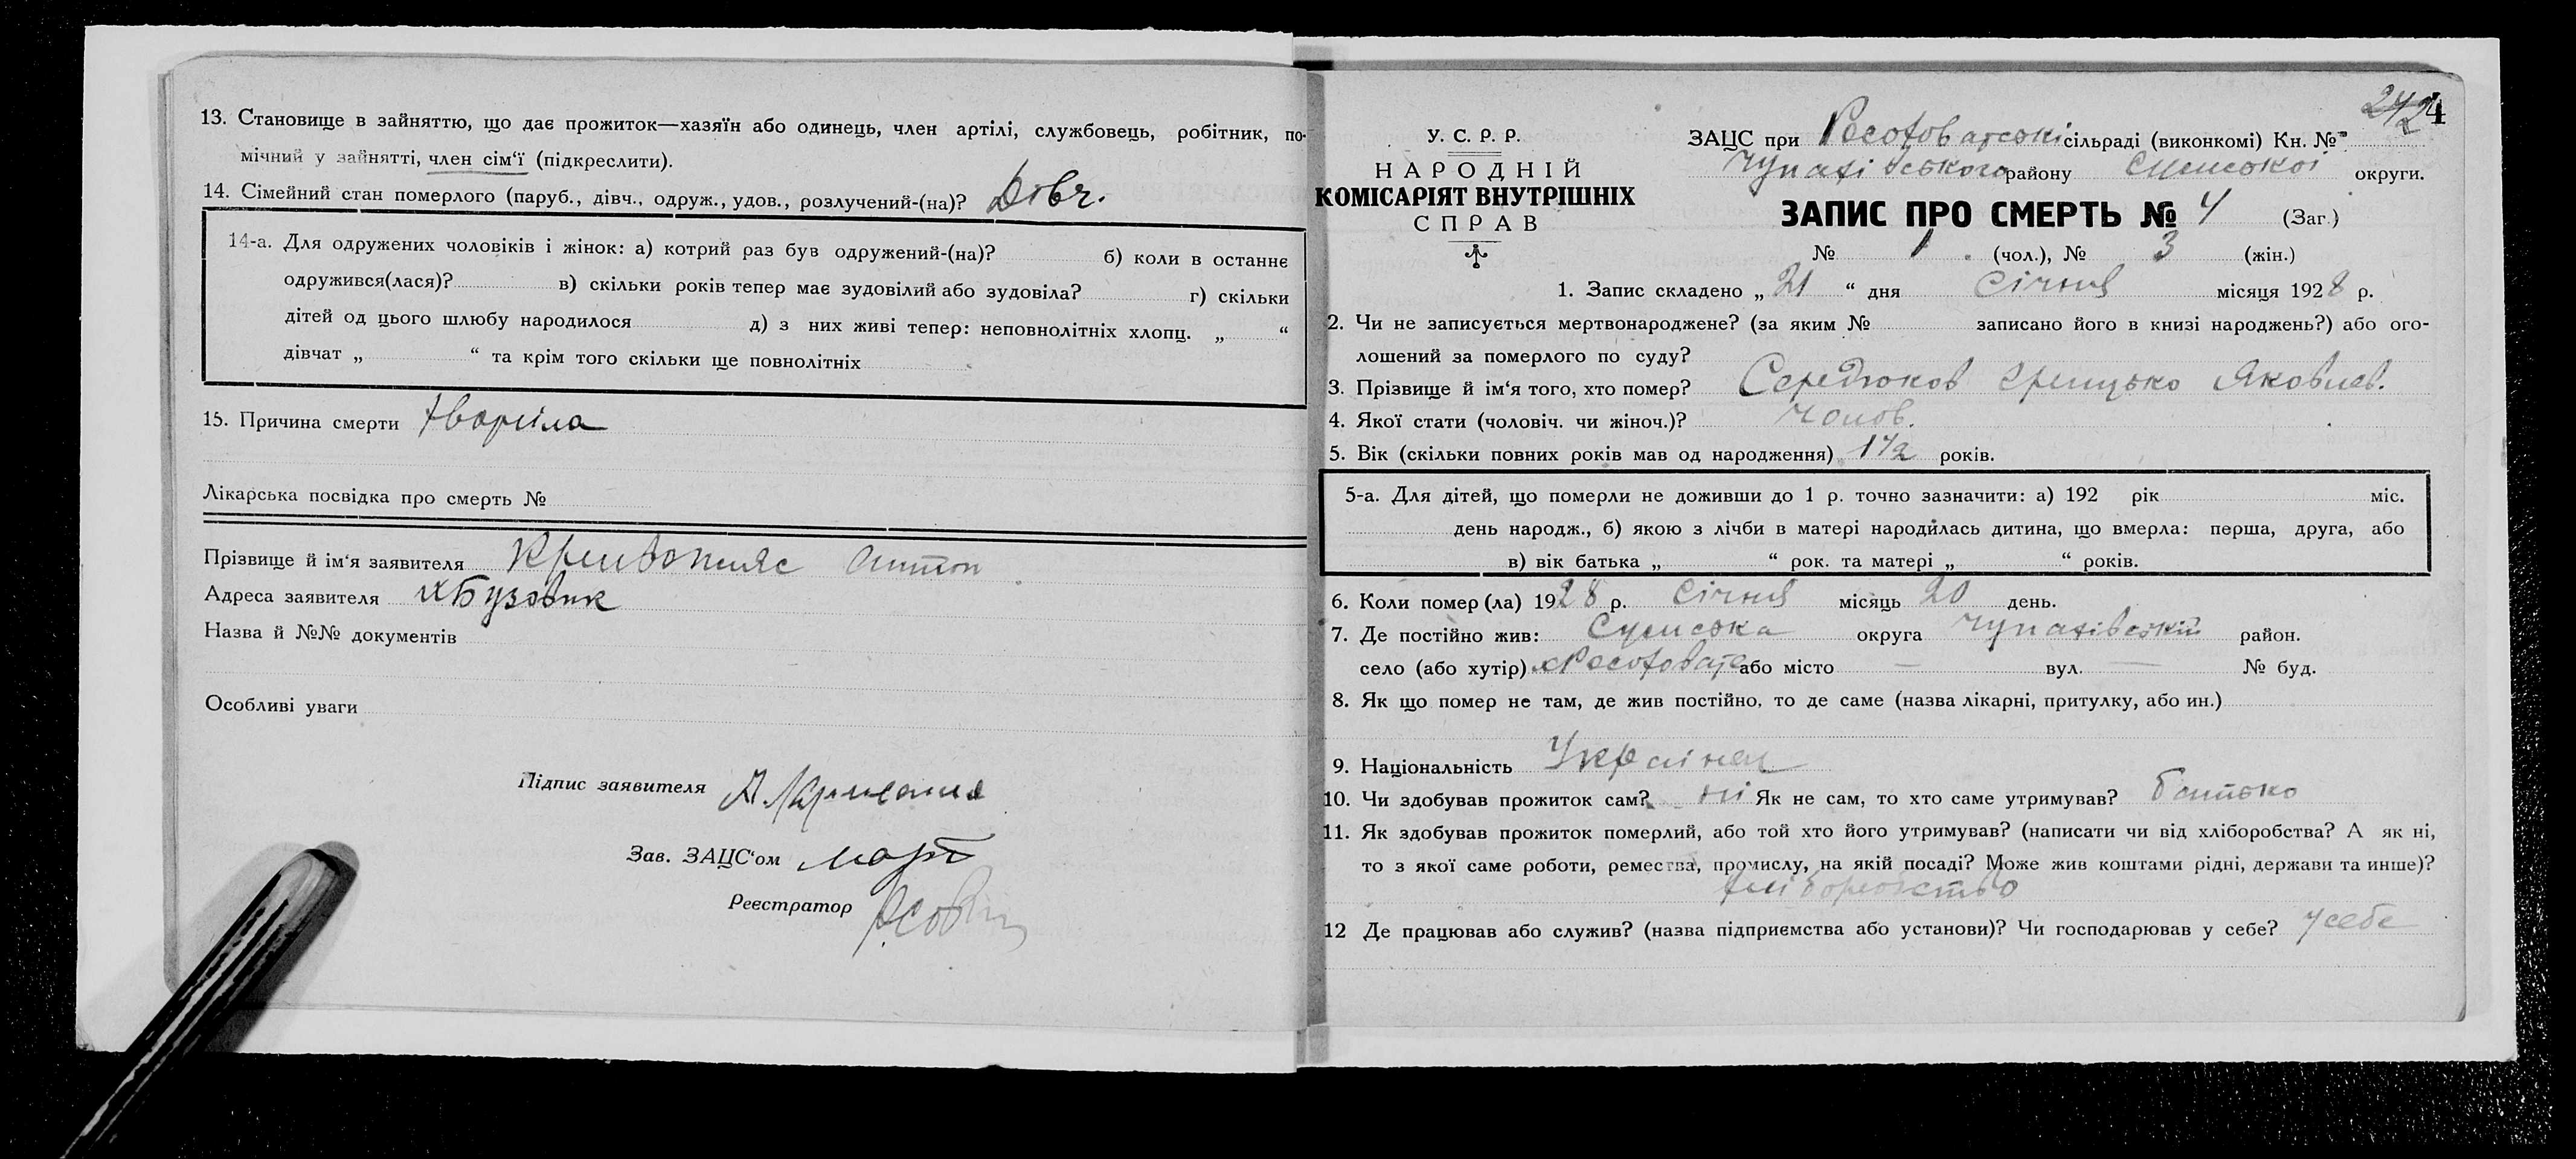 13. Становище в зайняттю, що дає прожиток—хазяїн або одинець, член артілі, службовець, робітник, по-
мічний у зайнятті, член сім‘ї (підкреслити).
14. Сімейний стан померлого (паруб., дівч., одруж., удов., розлучений-(на)? Дівч.
14-а. Для одружених чоловіків і жінок: а) котрий раз був одружений-(на)? б) коли в останнє
одружився(лася)? в) скільки років тепер має зудовілий або зудовіла? г) скільки
дітей од цього шлюбу народилося д) з них живі тепер: неповнолітніх хлопц. „ “
дівчат „ “ та крім того скільки ще повнолітніх
15. Причина смерти хворіла
Лікарська посвідка про смерть №
Прізвище й ім‘я заявителя Кривопляс Антон
Адреса заявителя х Бузовик
Назва й №№ документів
Особливі уваги
Підпис заявителя
Зав. ЗАЦС‘ом
Реєстратор
242 4
У. С. Р. Р.
НАРОДНІЙ
КОМІСАРІЯТ ВНУТРІШНІХ
СПРАВ
ЗАЦС при сільраді (виконкомі) Кн. №
Чупахівського району Сумської округи.
ЗАПИС ПРО СМЕРТЬ № 4 (Заг.)
№ 1 (чол.), № 3 (жін.)
1. Запис складено „ 21 “ дня Січня місяця 1928 р.
2. Чи не записується мертвонароджене? (за яким № записано його в книзі народжень?) або ого-
лошений за померлого по суду?
3. Прізвище й ім‘я того, хто помер? Середюков Грицько Яковлев.
4. Якої стати (чоловіч. чи жіноч.)? Чолов.
5. Вік (скільки повних років мав од народження) 1 1/2 років.
5-а. Для дітей, що померли не доживши до 1 р. точно зазначити: а) 192 рік міс.
день народж., б) якою з лічби в матері народилась дитина, що вмерла: перша, друга, або
в) вік батька „ “ рок. та матері „ “ років.
6. Коли помер (ла) 1928 р. Січня місяць 20 день.
7. Де постійно жив: Сумська округа Чупахівський район.
село (або хутір) або місто — вул. — № буд.
8. Як що помер не там, де жив постійно, то де саме (назва лікарні, притулку, або ин.)
9. Національність Українец
10. Чи здобував прожиток сам? ні Як не сам, то хто саме утримував? батько
11. Як здобував прожиток померлий, або той хто його утримував? (написати чи від хліборобства? А як ні,
то з якої саме роботи, ремества, промислу, на якій посаді? Може жив коштами рідні, держави та инше)?
хліборобство
12 Де працював або служив? (назва підприємства або установи)? Чи господарював у себе? У себе